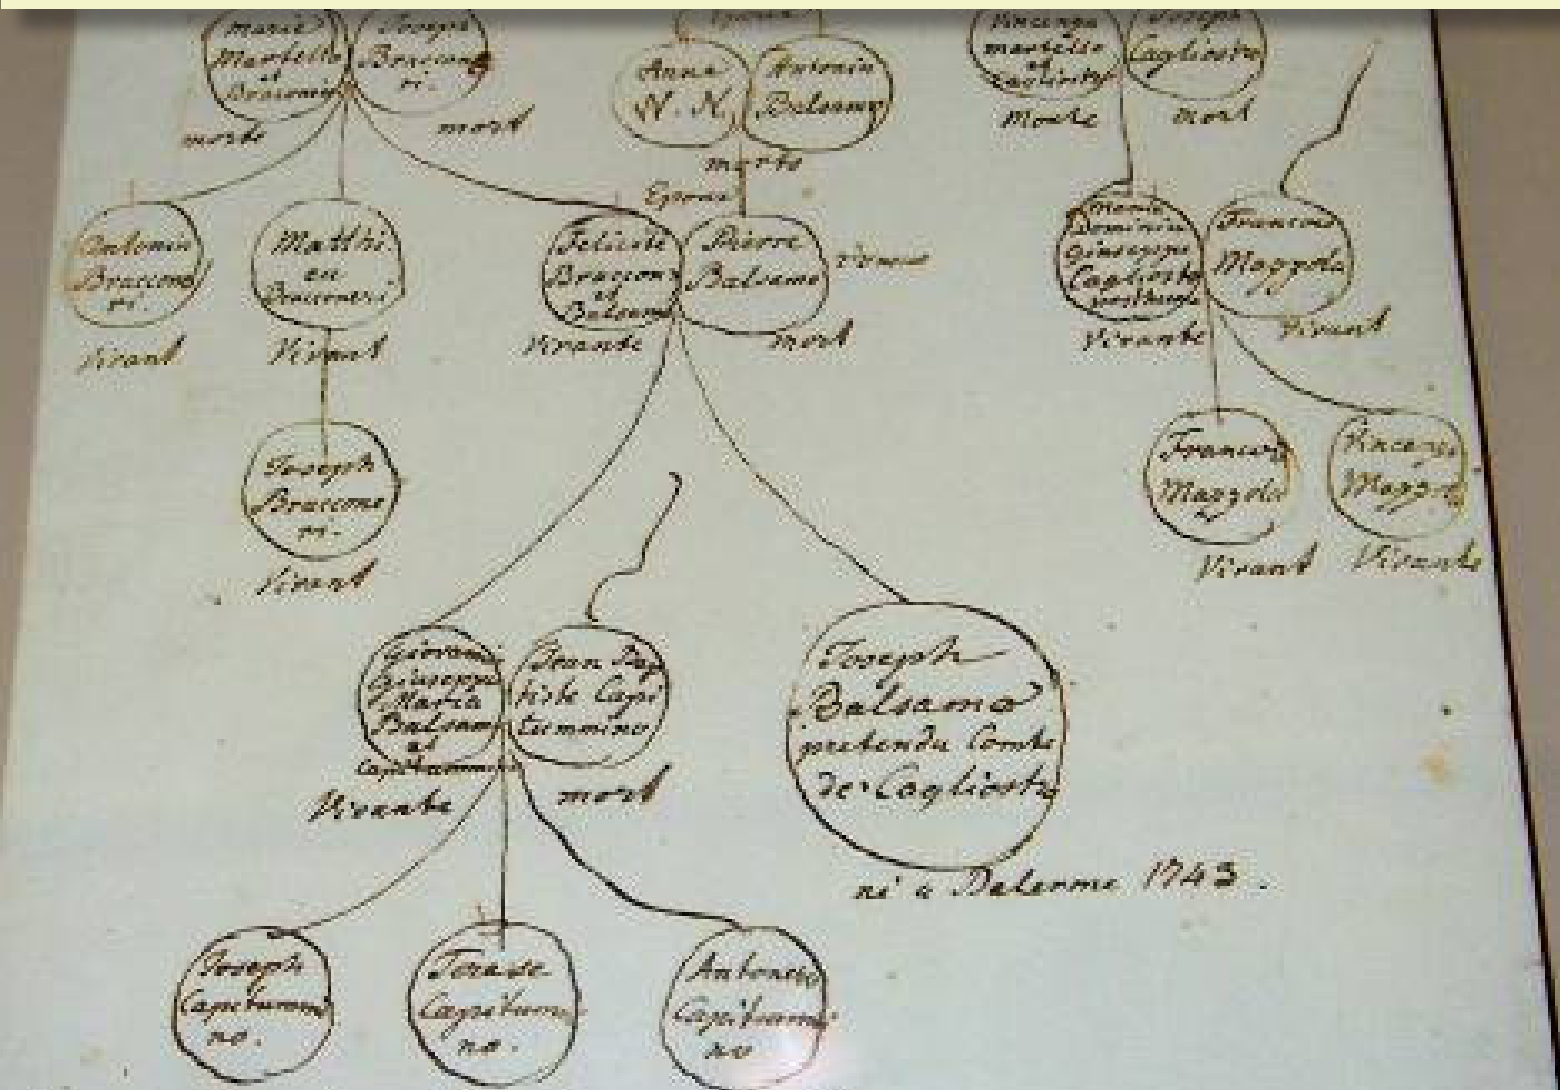 Marie
Martello
et
Bracconeri
morte
Joseph
Braccone
ri.
mort
Anna
N. N.
Antonin
Balsamo
morte
Vincenza
martello
et
Cagliostro
Morte
Joseph
Cagliostro
mort
Antonin
Braccone
ri.
Vivant
Matthi
eu
Bracconeri
Vivant
Epoux
Felicité
Braccon
et
Balsamo
Vivante
Pierre
Balsamo
mort
Dominiu
Giuseppe
Cagliostro
Vivante
Francois
Mazzola
Vivant
Joseph
Braccone
ri.
Vivant
Francois
Mazzola
Vivant
Vincenza
Mazzola
Vivante
Giovanni
Giuseppe
Maria
Balsam
et
Capitummino
Vivante
Jean Bap
tiste Capi
tummino
mort
Joseph
Balsamo
pretendu Comte
de Cagliostro
né a Palerme 1743.
Joseph
Capitummi
no.
Terese
Capitumi
no.
Antonin
Capitummi
no